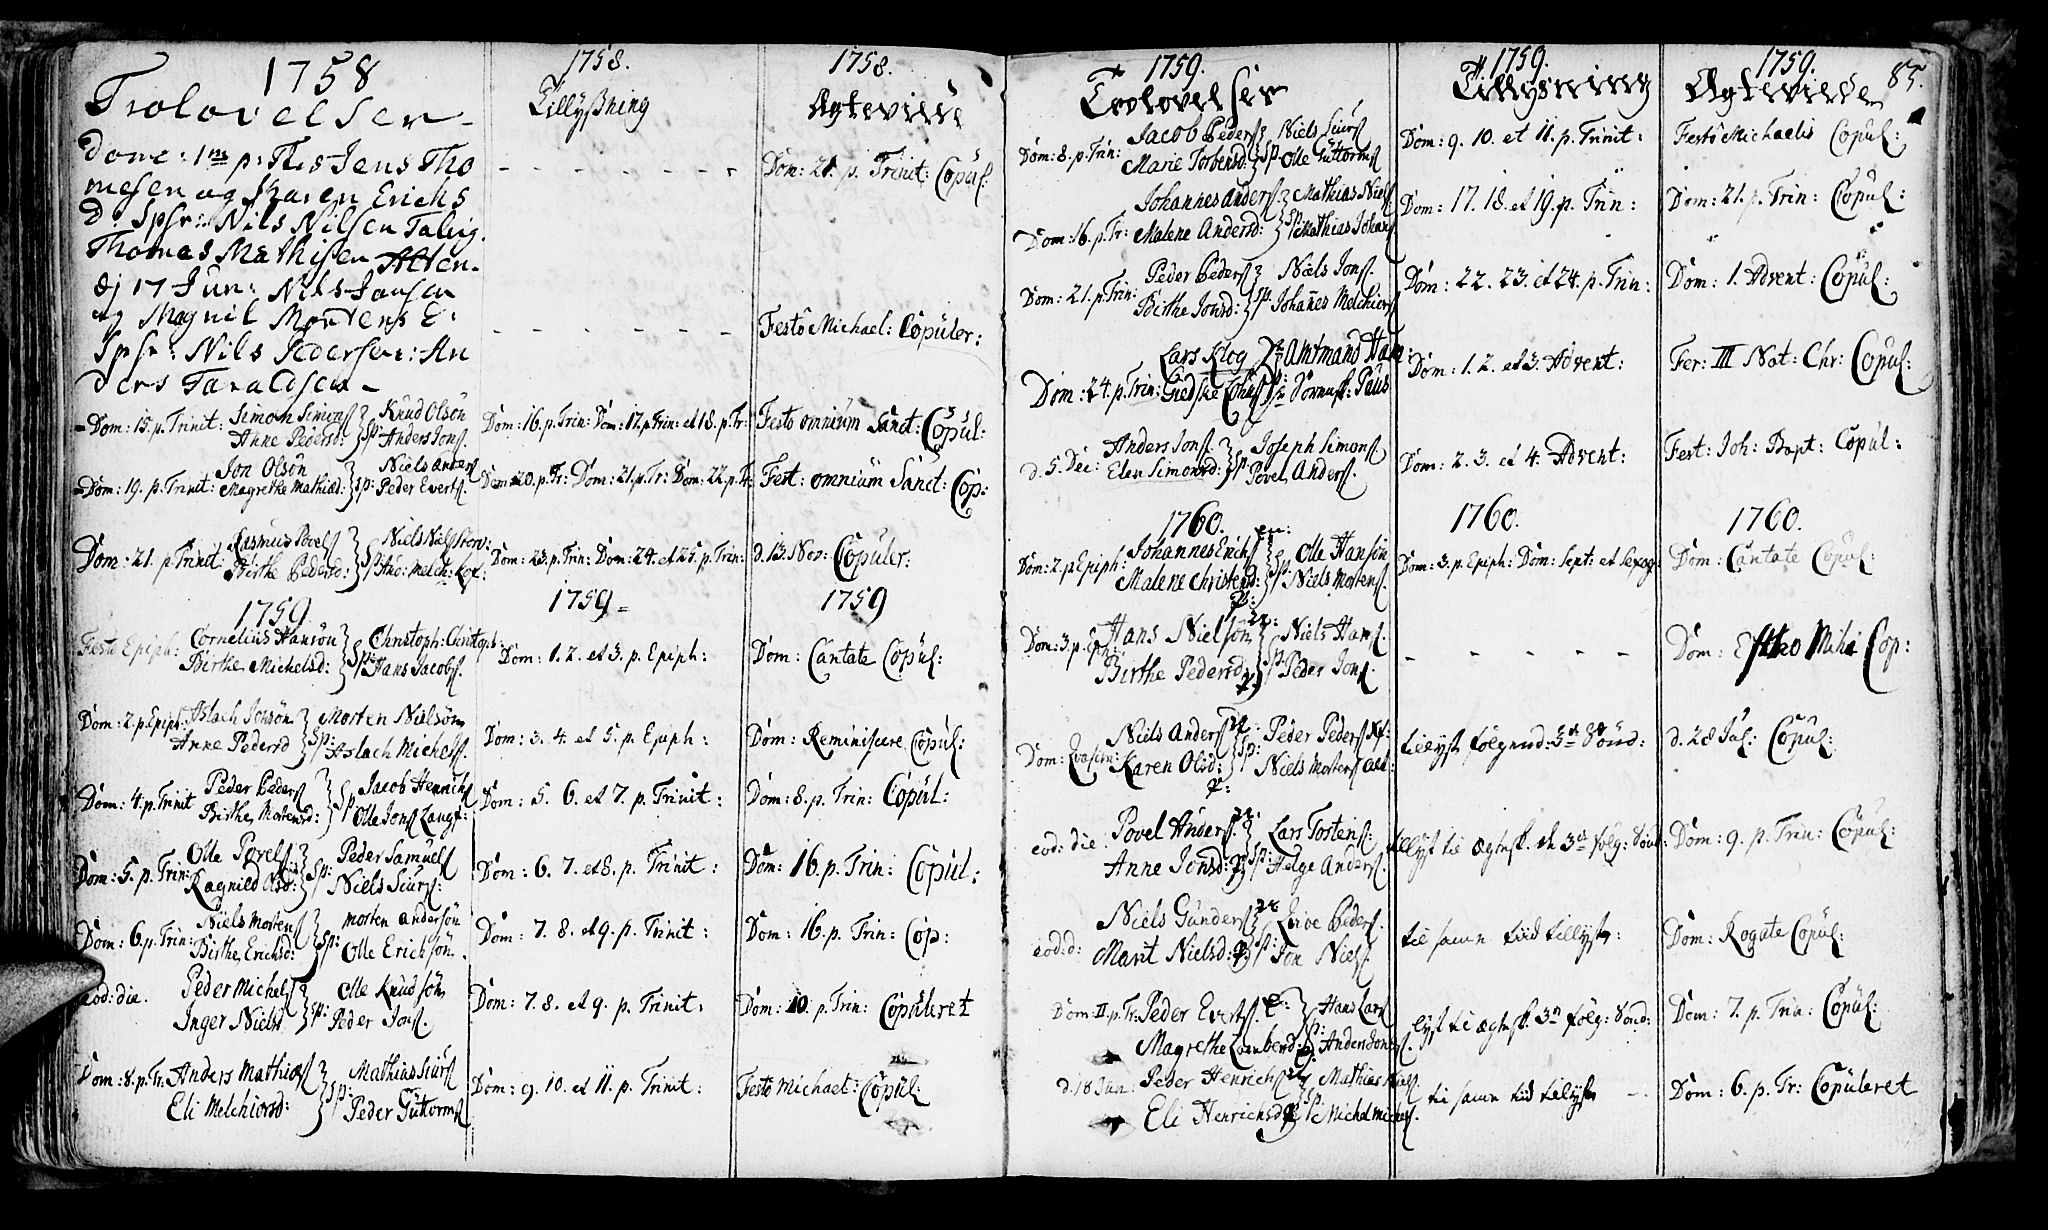 1758
Trolovelser
Dom: 1ma p: Trs Jens Tho
mesen og Karen Erichs
D. Spsr: Nils Nilsen Talvig.
Thomas Mathisen Alten.
dj 17 Jun: Nils Jansen
og Magnil Mortens D:
Spsr: Nils Pedersen: An
ders Taraldsen
1758.
Tillyßning
1758.
Ægteviede
Dom: 21. p. Trinit: Copul:
Festo Michael: Copuler:
Dom: 15. p. Trinit: Simon Simons. Knud Olsön
Anne Pedersd: Sp: Anders Jons.
Dom: 16. p. Trin: Dom: 17. p. Trin: et 18. p. Tr:
Festo omnium Sanct: Copul:
Dom: 19. p. Trinit: Jon Olsön Niels Anders
Magrethe Mathiæd: Sp: Peder Everts.
Dom: 20. p. Tr: Dom: 21. p. Tr: Dom: 22. p. Tr:
Fest: omnium Sanct: Cop:
Dom: 21. p. Trinit: Rasmus Povels Niels Niels
Birthe Pedersd: Sp
Dom: 23. p. Trin: Dom: 24. et 25. p. Trin:
d. 13 Nov: Copuler.
1759
1759
1759
Festo Epiph: Cornelius Hansön Christoph: Christoph:
Birthe Michelsd: Sp: Hans Jacobs.
Dom: 1. 2. et 3. p. Epiph:
Dom: Cantate Copul:
Dom: 2. p. Epiph: Aslach Jonsön Morten Nielsön
Anne Pedersd Sp: Aslach Michels.
Dom: 3. 4. et 5. p. Epiph:
Dom: Reminiscere Copul:
Dom: 4. p. Trinit Peder Peders Jacob Henrichs
Birthe Mortensd: Sp: Olle Jons
Dom: 5. 6. et 7. p. Trinit:
Dom: 8. p. Trin: Copul:
Dom: 5. p. Trin: Olle Povels Peder Samuels
Ragnild Olsd: Sp: Niels Siurs:
Dom: 6. 7. et 8. p. Trinit:
Dom: 16. p. Trin: Copul:
Dom: 6. p. Trin: Niels Mortens Morten Andersön
Birthe Erichsd: Sp: Olle Erichsön.
Dom: 7. 8. et 9. p. Trinit:
Dom: 16. p. Trin: Cop:
eod: die. Peder Michels Olle Knudsön
Inger Niels Sp: Peder Jons.
Dom: 7. 8. et 9. p. Trinit:
Dom: 10. p. Trin: Copuleret
Dom: 8. p. Tr: Anders Mathiæs Mathias Siurs
Eli Melchiorsd: Sp: Peder Guttorms
Dom: 9. 10. et 11. p. Trinit:
Festo Michael: Copul:
1759.
Trolovelser
1759.
Tillysning
1759.
Ægteviede
85.
Dom: 8. p. Trin: Jacob Peders Niels Siurs
Marie Torbensd: Sp: Olle Guttorms
Dom: 9. 10. et 11. p. Trinit:
Festo Michaelis Copul:
Johannes Anders. Mathias Niels
Dom: 16. p. Tr: Malene Andersd: Sp: Mathias Johans
Dom: 17. 18. et 19. p. Trin:
Dom: 21. p. Trin: Copul:
Peder Peders Niels Jons.
Dom: 21. p. Trin: Birthe Jonsd: Sp: Johannes Melchiors
Dom: 22. 23. et 24. p. Trin:
Dom: 1. Advent: Copul:
Lars Klog Amtmand Ham:
Dom: 24. p. Trin: Giedske
Dom: 1. 2. et 3. Advent:
Fer: III Nat: Chr: Copul:
Anders Jons. Joseph Simons
d. 5. Dec: Elen Simonsd: Sp: Povel Anders.
Dom: 2. 3. et 4. Advent:
Fest: Joh: Bapt: Copul:
1760.
1760.
1760.
Dom: 2. p. Epiph: Johannes Erichs Olle Hansön
Malene Christensd: Sp: Niels Mortens.
Dom: 3. p. Epiph: Dom: Sept: et Sexag:
Dom: Cantate Copul:
Dom: 3. p. Eph: Hans Nielsön Niels Hans.
Birthe Pedersd: Sp: Peder Jons.
Dom: Esto Mihi Cop:
Niels Anders Peder Peders
Dom: Qvasim: Karen Olsd: Sp: Niels Mortens
tillyst følgend: 3de Sönd:
d. 28 Jul: Copul:
eod: die Povel Anders. Lars Tostens:
Anne Jonsd: Sp: Helge Anders.
tillyst til ægtesk. de 3de følg: Sönd:
Dom: 9. p. Trin: Copul:
Niels Gunders Peders.
eod: d: Marit Nielsd: Sp: Jon Niels.
til samme tiid tillyst:
Dom: Rogate Copul:
Dom: II. p. Tr: Peder Everts. Hans Lars
Magrethe Sp: Anders Jons.
lyst til ægtesk. 3de følg: Sönd:
Dom: 7. p. Trin: Copul:
d. 18 Jun: Peder Henrichs Mathias Niels
Eli Henrichsd Sp: Michel Michels.
til samme tid tillyst
Dom: 6. p. Tr: Copuleret